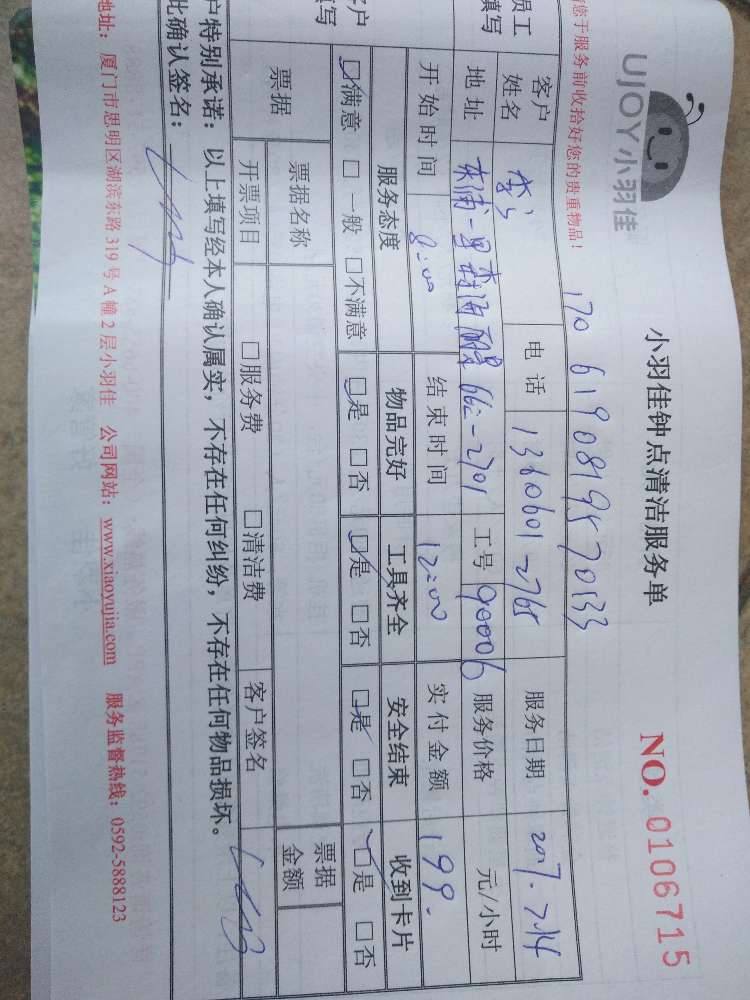 UJOY小羽佳
小羽佳钟点清洁服务单
NO. 0106715
您于服务前收拾好您的贵重物品!
员工
填写
客户
姓名
李
电话
服务日期
2017.7.14
地址
工号
90006
服务价格
元/小时
开始时间
8:00
结束时间
12:00
实付金额
199.
客户
填写
服务态度
物品完好
工具齐全
安全结束
收到卡片
☑满意 □一般 □不满意
☑是 □否
☑是 □否
☑是 □否
☑是 □否
票据
票据名称
票据
金额
开票项目
□服务费 □清洁费
客户签名
户特别承诺:以上填写经本人确认属实,不存在任何纠纷,不存在任何物品损坏。
此确认签名:
地址:厦门市思明区湖滨东路 319 号 A 幢 2 层小羽佳 公司网站:www.xiaoyujia.com 服务监督热线:0592-5888123